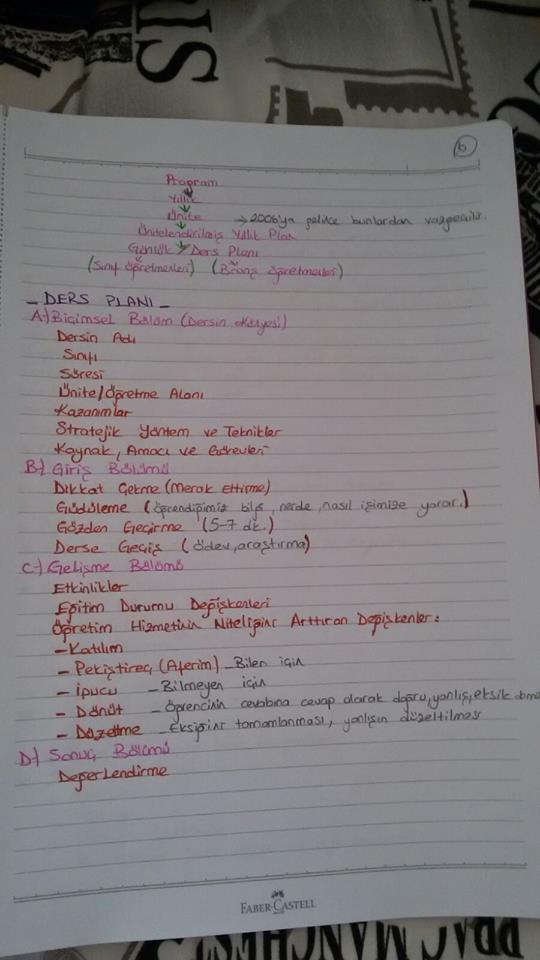 SIUS
6
Program
Yıllık
Ünite → 2006'ya gelince bunlardan vazgeçilir.
Ünitelendirilmiş Yıllık Plan
Günlük / Ders Planı
(Sınıf Öğretmenleri) (Branş Öğretmenleri)
- DERS PLANI -
A) Biçimsel Bölüm (Dersin
Dersin Adı
Sınıfı
Süresi
Ünite/Öğretme Alanı
Kazanımlar
Stratejik Yöntem ve Teknikler
Kaynak, Amacı ve Görevleri
B) Giriş Bölümü
Dikkat Çekme (Merak Ettirme)
Güdüleme (öğrendiğimiz bilgi, nerde, nasıl işimize yarar.)
Gözden Geçirme (5-7 dk.)
Derse Geçiş (ödev, araştırma)
C) Gelişme Bölümü
Etkinlikler
Eğitim Durumu Değişkenleri
Öğretim Hizmetinin Niteliğini Arttıran Değişkenler:
- Katılım
- Pekiştireç (Aferin) - Bilen için
- İpucu - Bilmeyen için
- Dönüt - Öğrencinin cevabına cevap olarak doğru, yanlış, eksik
- Düzeltme - Eksiğini tamamlanması, yanlışın düzeltilmesi
D) Sonuç Bölümü
Değerlendirme
FABER-CASTELL